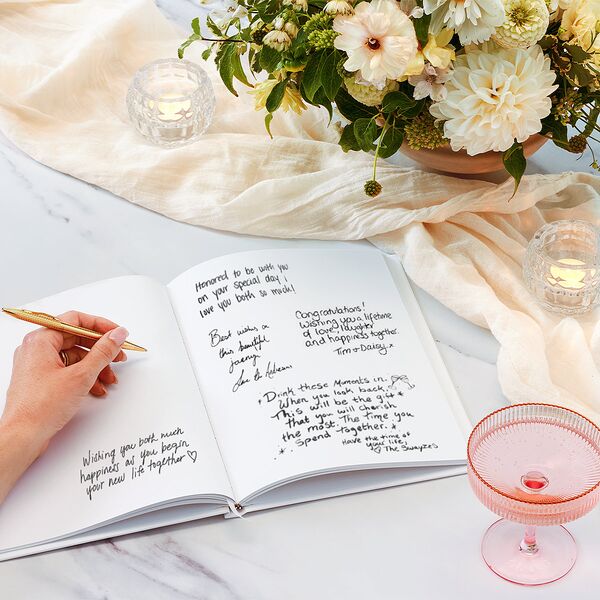 Wishing you both much
happiness as you begin
your new life together ♡
Honored to be with you
on your special day!
love you both so much!
Best wishes on
this beautiful
journey
Congratulations!
Wishing you a lifetime
of love, laughter
and happiness together.
Tim + Daisy
Drink these moments in.
When you look back,
This will be the gift
that you will cherish
the most. The time you
Spend together.
Have the time of
your life,
♡ The Swayzes